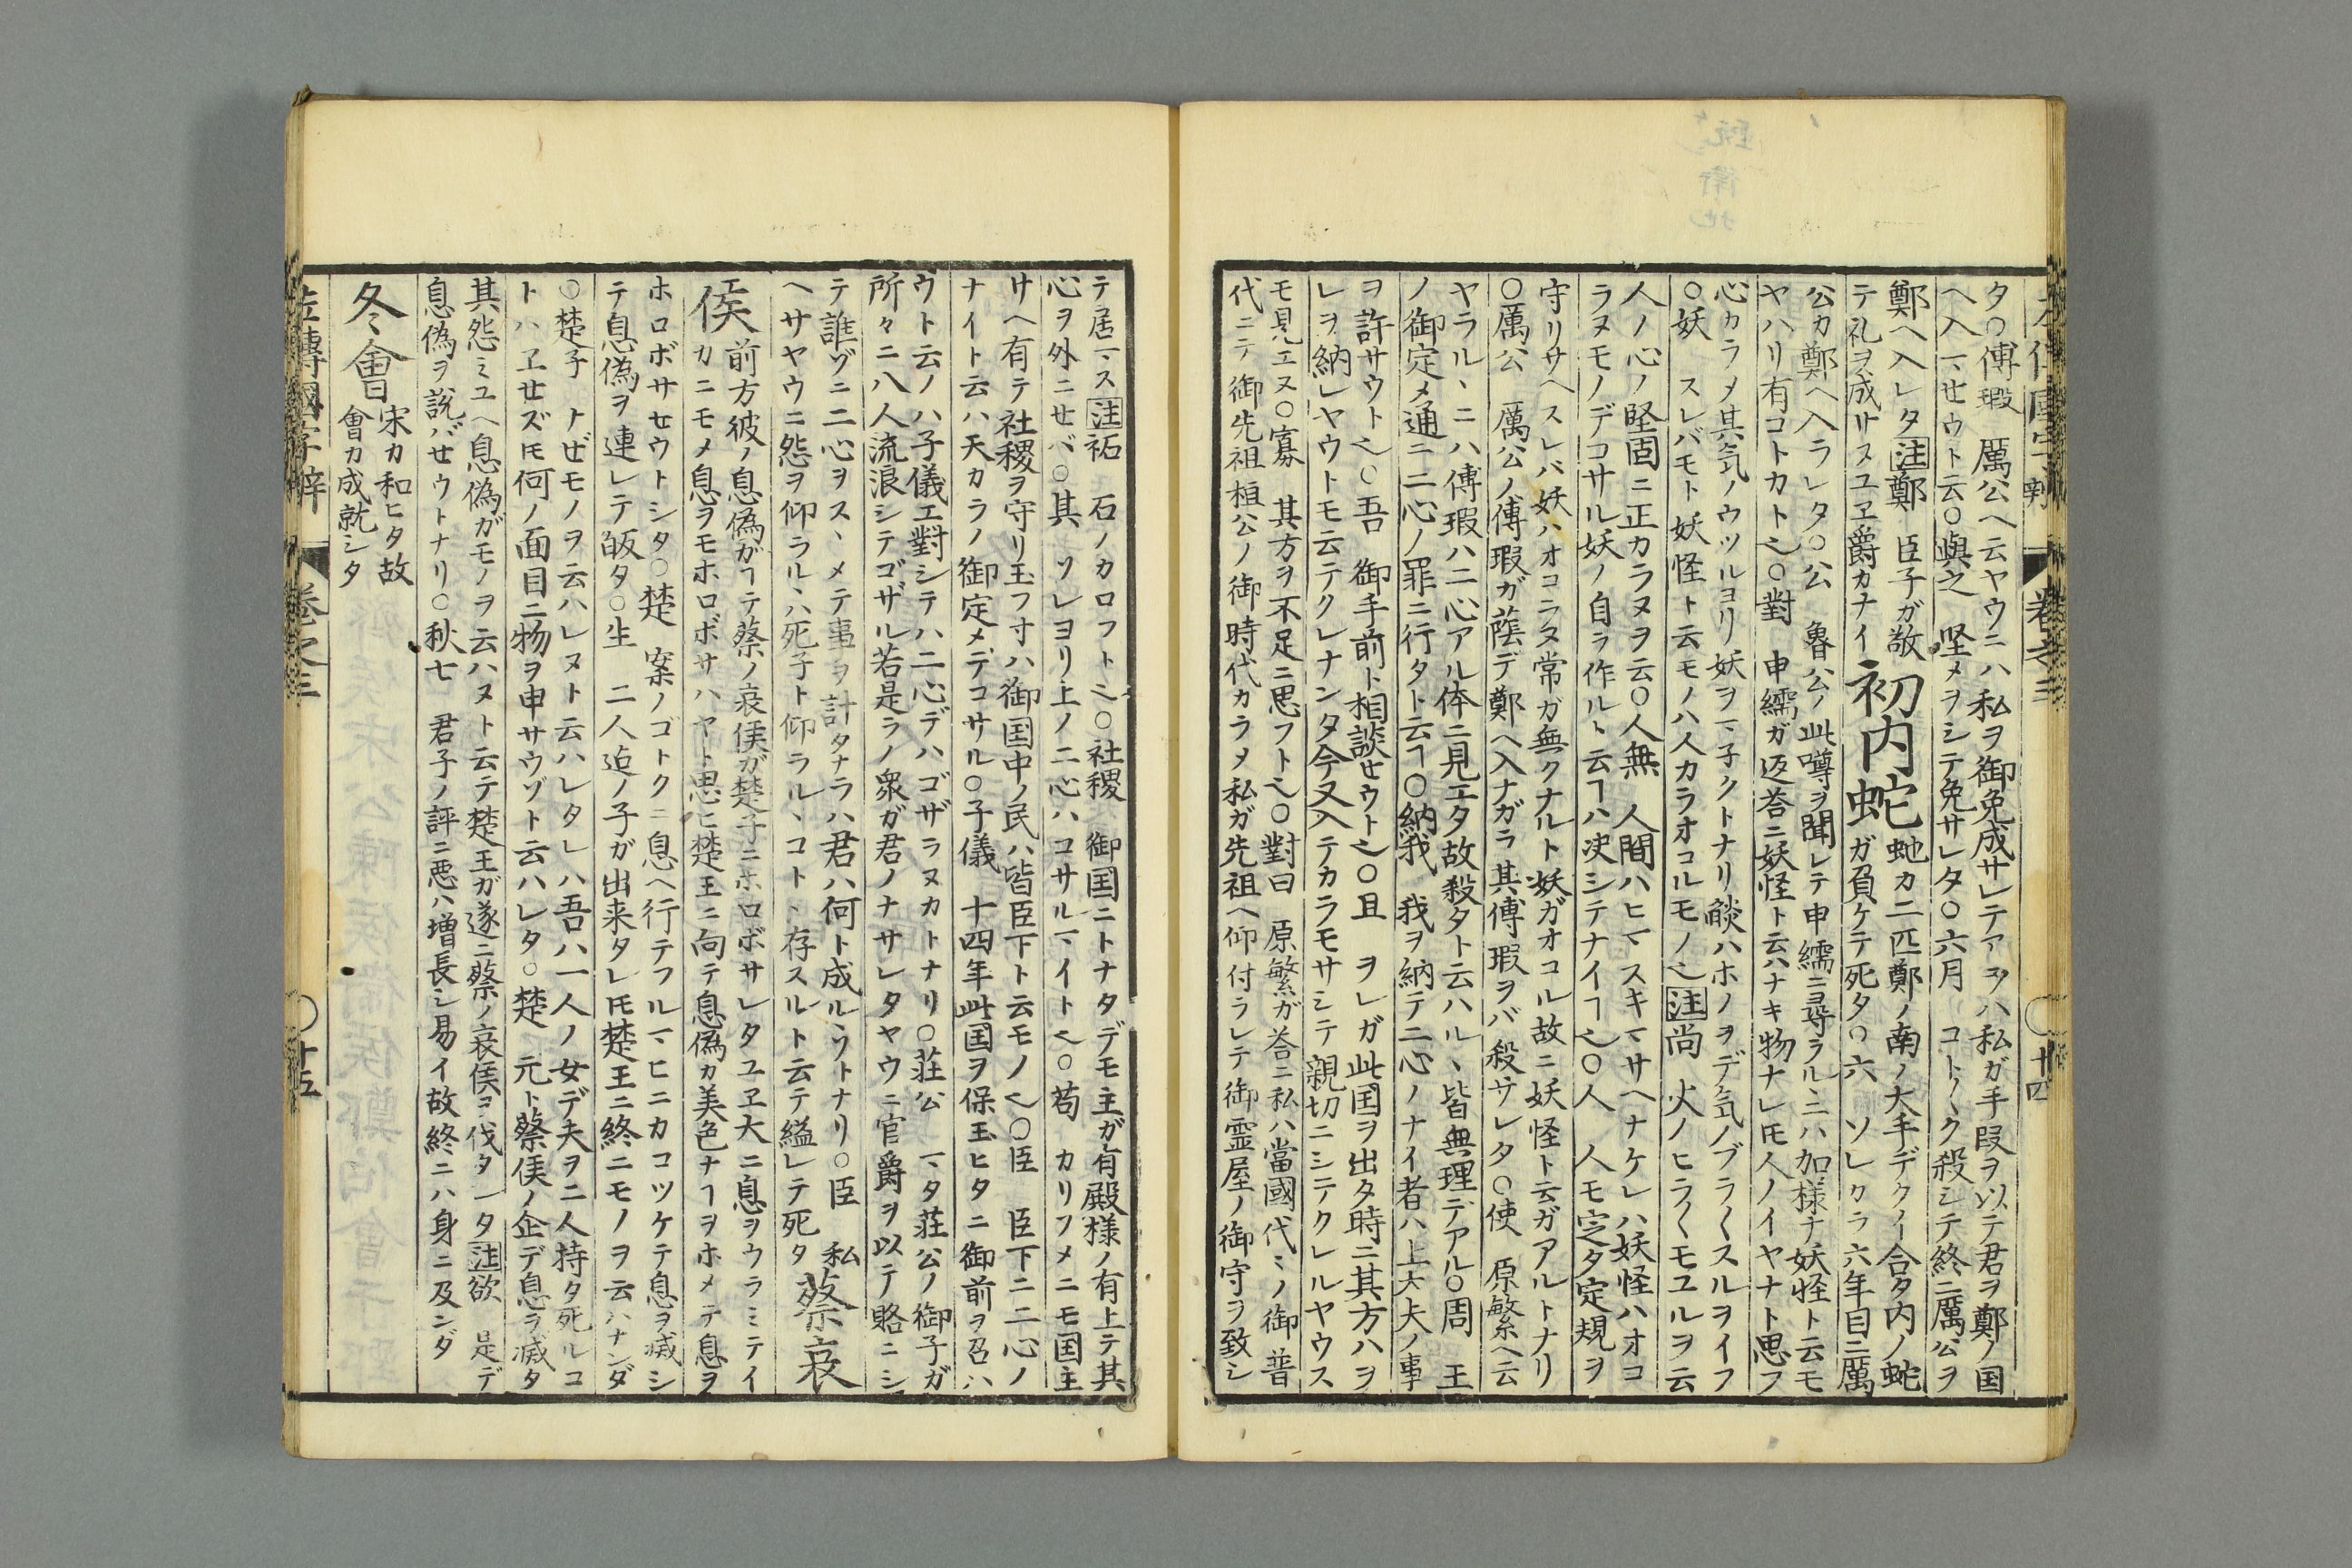 左傳國字辯 卷之三 〇十四
タ〇傅瑕 厲公ヘ云ヤウニハ私ヲ御免成サレテアラハ私ガ手段ヲ以テ君ヲ鄭ノ国
ヘ入マセウト云〇與之 坚メヲシテ免サレタ〇六月 コト〱ク殺シテ終ニ厲公ヲ
鄭ヘ入レタ注鄭 臣子ガ敬
テ礼ヲ成サヌユヱ爵カナイ
初内蛇
虵カ二匹鄭ノ南ノ大手デクイ合タ内ノ蛇
ガ負ケテ死タ〇六 ソレカラ六年目ニ厲
公カ鄭ヘ入ラレタ〇公 魯公ノ此噂ヲ聞レテ申繻ニ尋ラルヽニハ加様ナ妖怪ト云モ
ヤハリ有コトカト也〇對 申繻ガ返荅ニ妖怪ト云ハナキ物ナレ𪜈人ノイヤナト思フ
心カラメ其気ノウツルヨリ妖ヲマ子クトナリ燄ハホノヲデ気ノブラ〱スルヲイフ
〇妖 スレバモト妖怪ト云モノハ人カラオコルモノ也注尚 火ノヒラ〱モユルヲ云
人ノ心ノ堅固ニ正カラヌヲ云〇人無 人間ハヒマスキマサヘナケレハ妖怪ハオコ
ラヌモノデコサル妖ノ自ラ作ルト云ヿハ决シテナイヿ也〇人 人モ定タ定規ヲ
守リサヘスレバ妖ハオコラヌ常ガ無クナルト妖ガオコル故ニ妖怪ト云ガアルトナリ
〇厲公 厲公ノ傅瑕ガ蔭デ鄭ヘ入ナガラ其傅瑕ヲバ殺サレタ〇使 原繁ヘ云
ヤラルヽニハ傅瑕ハ二心アル体ニ見エタ故殺タト云ハルヽ皆無理デアル〇周 王
ノ御定メ通ニ二心ノ罪ニ行タト云ヿ〇納我 我ヲ納テ二心ノナイ者ハ上大夫ノ事
ヲ許サウト也〇吾 御手前ト相談セウト也〇且 ヲレガ此国ヲ出タ時ニ其方ハヲ
レヲ納レヤウトモ云テクレナンタ今又入テカラモサシテ親切ニシテクレルヤウス
モ見エヌ〇寡 其方ヲ不足ニ思フト也〇對曰 原繁ガ荅ニ私ハ當國代〻ノ御普
代ニテ御先祖桓公ノ御時代カラメ私ガ先祖ヘ仰付ラレテ御霊屋ノ御守ヲ致シ
テ居マス注祏 石ノカロフト也〇社稷 御国ニトナタデモ主ガ有殿様ノ有上テ其
心ヲ外ニセバ〇其 ソレヨリ上ノ二心ハコサルマイト也〇苟 カリソメニモ国主
サヘ有テ社稷ヲ守リ玉フ寸ハ御国中ノ民ハ皆臣下ト云モノ也〇臣 臣下ニ二心ノ
ナイト云ハ天カラノ御定メデコサル〇子儀 十四年此国ヲ保玉ヒタニ御前ヲ召ハ
ウト云ノハ子儀エ對シテハ二心デハゴザラヌカトナリ〇荘公 マタ荘公ノ御子ガ
所々ニ八人流浪シテゴザル若是ラノ衆ガ君ノナサレタヤウニ官爵ヲ以テ賂ニシ
テ誰ゾニ二心ヲスヽメテ事ヲ計タナラハ君ハ何ト成ルヽソトナリ〇臣 私
ヘサヤウニ怨ヲ仰ラルヽハ死子ト仰ラルヽコトヽ存スルト云テ縊レテ死タ
蔡哀
侯
前方彼ノ息嬀ガヿテ蔡ノ哀侯ガ楚子ニホロボサレタユヱ大ニ息ヲウラミテイ
カニモメ息ヲモホロボサハヤト思ヒ楚王ニ向テ息嬀カ美色ナヿヲホメテ息ヲ
ホロボサセウトシタ〇楚 案ノゴトクニ息ヘ行テフルマヒニカコツケテ息ヲ滅シ
テ息嬀ヲ連レテ皈タ〇生 二人迠ノ子ガ出来タレ𪜈楚王ニ終ニモノヲ云ハナンダ
〇楚子 ナゼモノヲ云ハレヌト云ハレタレハ吾ハ一人ノ女デ夫ヲ二人持タ死ルコ
トハヱセズ𪜈何ノ面目ニ物ヲ申サウゾト云ハレタ〇楚 元ト蔡侯ノ企デ息ヲ滅タ
其怨ミユヘ息嬀ガモノヲ云ハヌト云テ楚王ガ遂ニ蔡ノ哀侯ヲ伐タレタ注欲 是デ
息嬀ヲ説バセウトナリ〇秋七 君子ノ評ニ悪ハ増長シ易イ故終ニハ身ニ及ンダ
冬會
宋カ和ヒタ故
會カ成就シタ
左傳國字辯 卷之三 〇十五